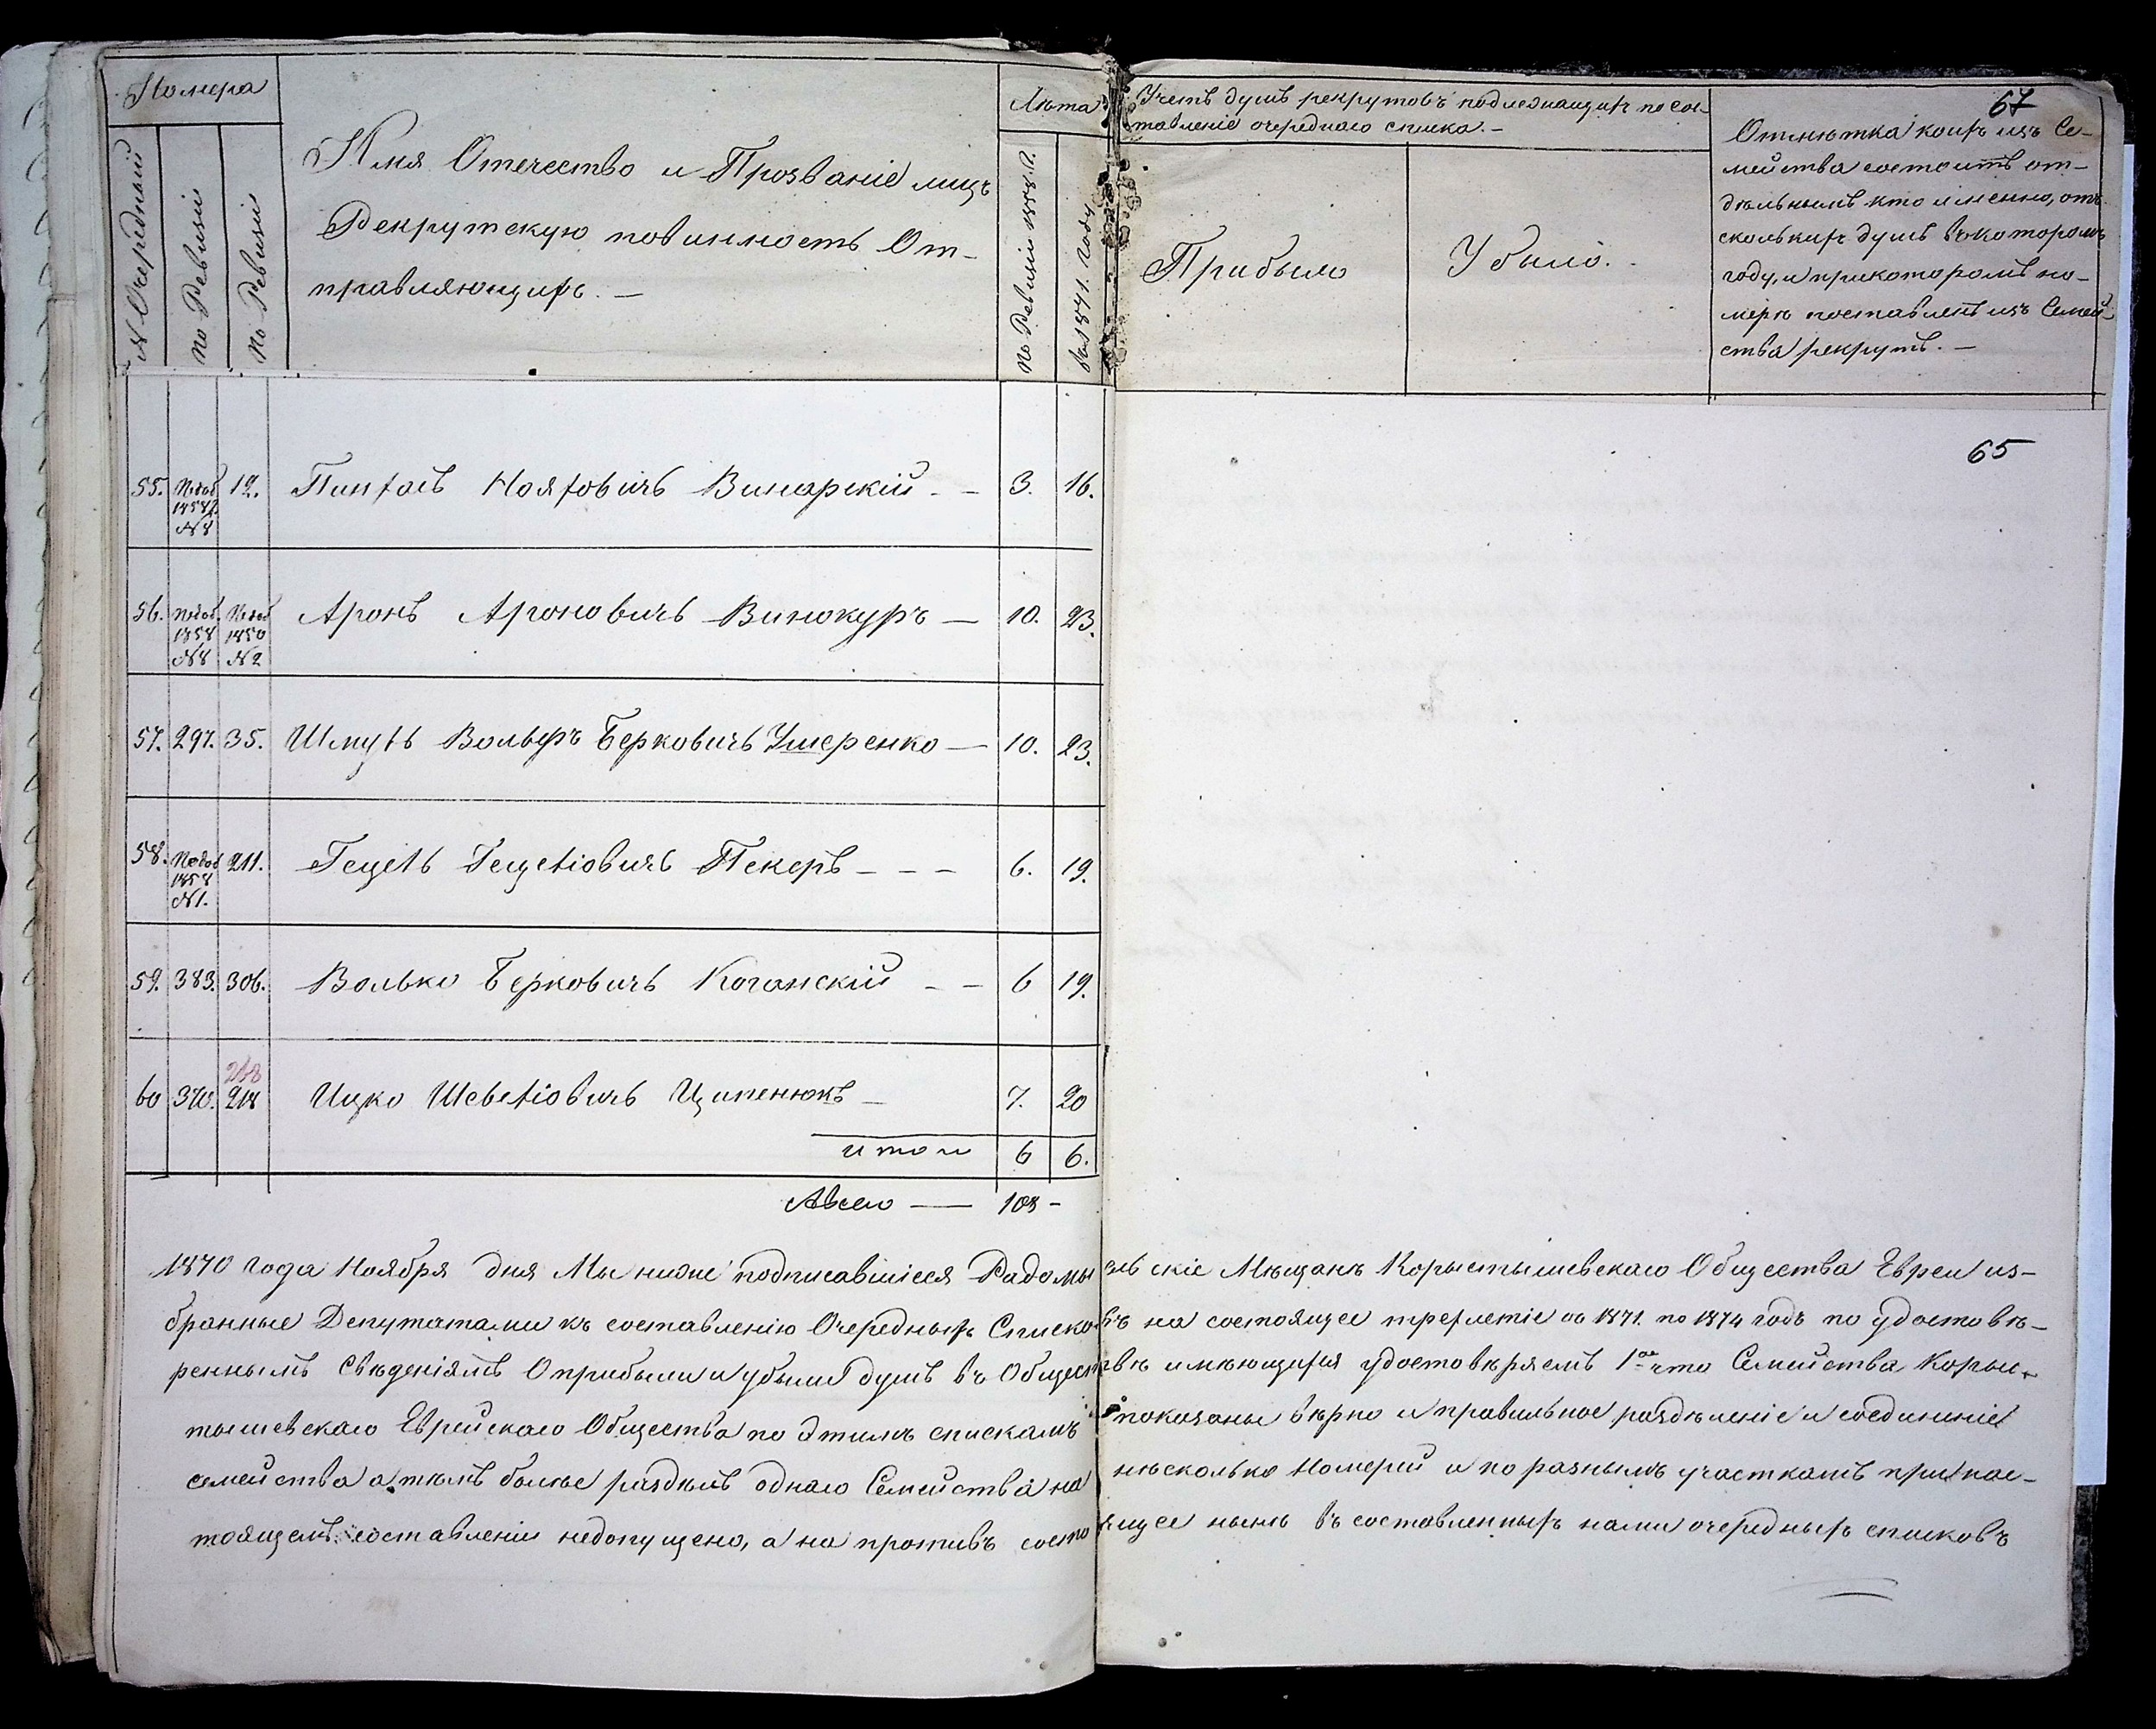 Номера
№ Очередный
по Ревизіи
по Ревизіи
Имя Отечество и Прозваніе лицъ
Рекрутскую повинность От-
правляющихъ. —
Лѣта
по Ревизіи 1858 г.
въ 1871. году
Учетъ душъ рекрутовъ подлежащихъ по сос-
тавленіе очереднаго списка. —
Прибыло
Убыло.
67
Отмѣтка коихъ изъ Се-
мейства состоитъ от-
дѣльнымъ кто именно, отъ
сколькихъ душъ въ которомъ
году, и при которомъ но-
мерѣ поставленъ изъ Семей-
ства рекрутъ. —
65
55. 1858 №8 12. Пинхасъ Нояховичъ Винарскій - - 3. 16.
56. 1858 №8 1850 №2 Аронъ Ароновичъ Винокуръ — 10. 23.
57. 297. 35. Шмуль Вольфъ Берковичъ Ушеренко — 10. 23.
58. 1858 №1. 211. Гецель Гецеліовичъ Пекеръ - - - 6. 19.
59. 383. 306. Волько Берковичъ Коганскій - - 6 19.
60 370. 218 Ицко Шевеліовичъ Ципенюкъ — 7. 20
итои 6 6.
Авсего — 108 -
1870 года Ноября дня Мы ниже подписавшіеся Радомысльскіе Мѣщанѣ Коростышевскаго Общества Евреи из-
бранные Депутатами къ составленію Очередныхъ Списковъ на состоящее трехлетіе съ 1871. по 1874 годъ по удостовѣ-
реннымъ Свѣденіямъ О прибыли и убыли душъ въ Обществѣ имѣющихся удостовѣряемъ 1ое что Семейства Корыс-
тышевскаго Еврейскаго Общества по этимъ спискамъ показаны вѣрно и правильное раздѣленіе и соединеніе
семейства а тѣмъ болѣе раздѣлъ однаго Семейства на нѣсколько Номерей и по разнымъ участкамъ при нас-
тоящемъ составленіи недопущено, а на противъ состоящее нынѣ въ составленныхъ нами очередныхъ списковъ